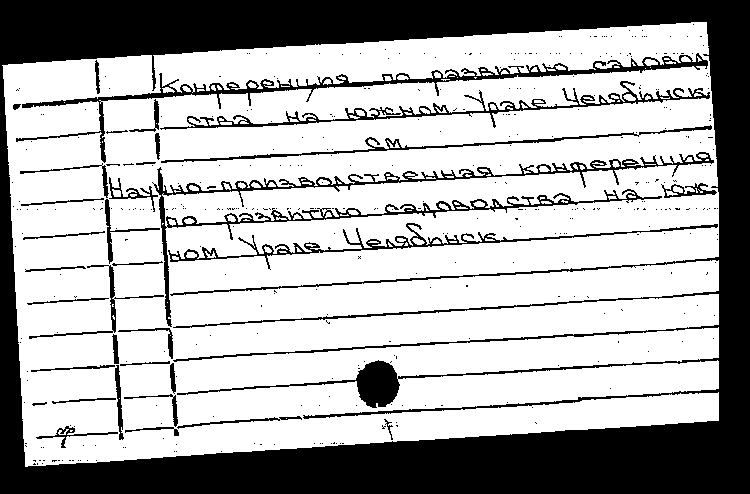 Конференция по развитию садовод
ства на южном Урале. Челябинск.
см.
Научно-производственная конференция
по развитию садоводства на Юж-
ном Урале. Челябинск.